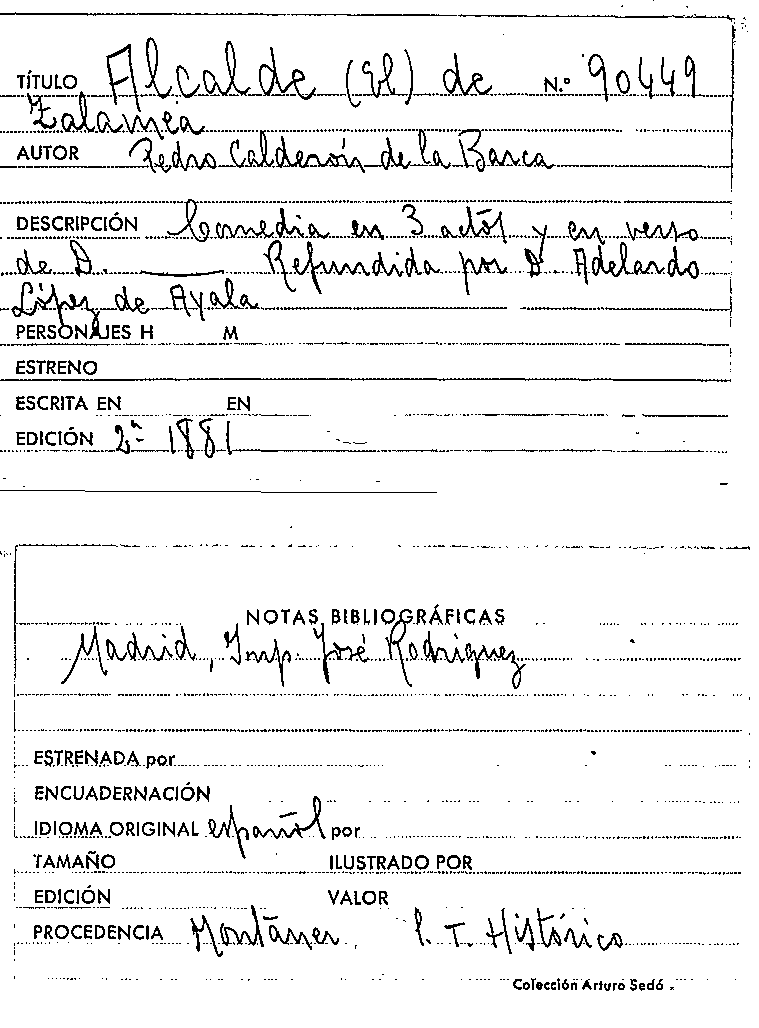 TÍTULO Alcalde (El) de N.º 90449
Zalamea
AUTOR Pedro Calderón de la Barca
DESCRIPCIÓN Comedia en 3 actos y en verso
de D. ______ Refundida por D. Adelardo
López de Ayala
PERSONAJES H M
ESTRENO
ESCRITA EN EN
EDICIÓN 2ª 1881
NOTAS BIBLIOGRÁFICAS
Madrid, Imp. José Rodriguez
ESTRENADA por
ENCUADERNACIÓN
IDIOMA ORIGINAL español por
TAMAÑO ILUSTRADO POR
EDICIÓN VALOR
PROCEDENCIA Montaner. T. Histórico
Colección Arturo Sedó